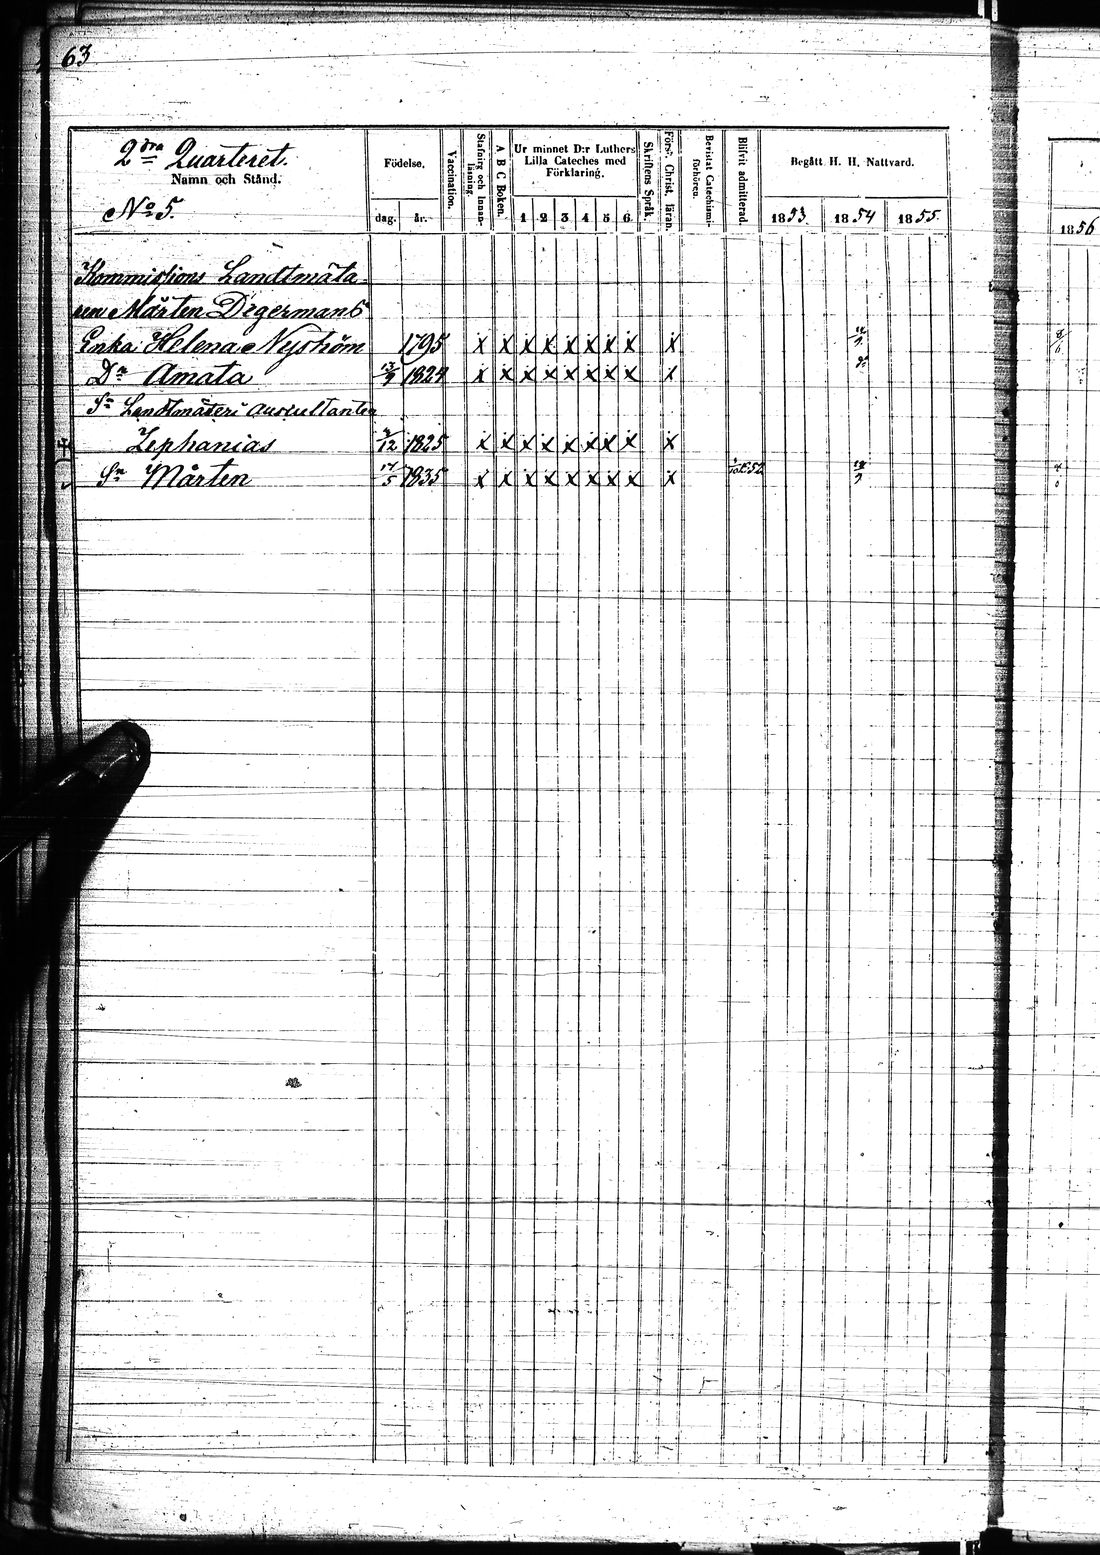 63
2dra Quarteret.
Namn och Stånd.
No 5.
Födelse.
dag. år.
Vaccination.
Stafning och Innanläsning.
A B C Boken.
Ur minnet D:r Luthers Lilla Cateches med Förklaring.
1 2 3 4 5 6
Skriftens Språk.
Förs. Christ. läran.
Bevistat Catechismiförhören.
Blifvit admitterad.
Begått H. H. Nattvard.
1853. 1854 1855.
1856
Kommissions Landtmäta-
ren Mårten Degermans
Enka Helena Nyström 1795 x x x x x x x x x
Dr Amata 13/9 1824 x x x x x x x x x
Sn Landtmäteri Auscultanten
Zephanias 12 1825 x x x x x x x x x
Sn Mårten 17/5 1835 x x x x x x x x x 52